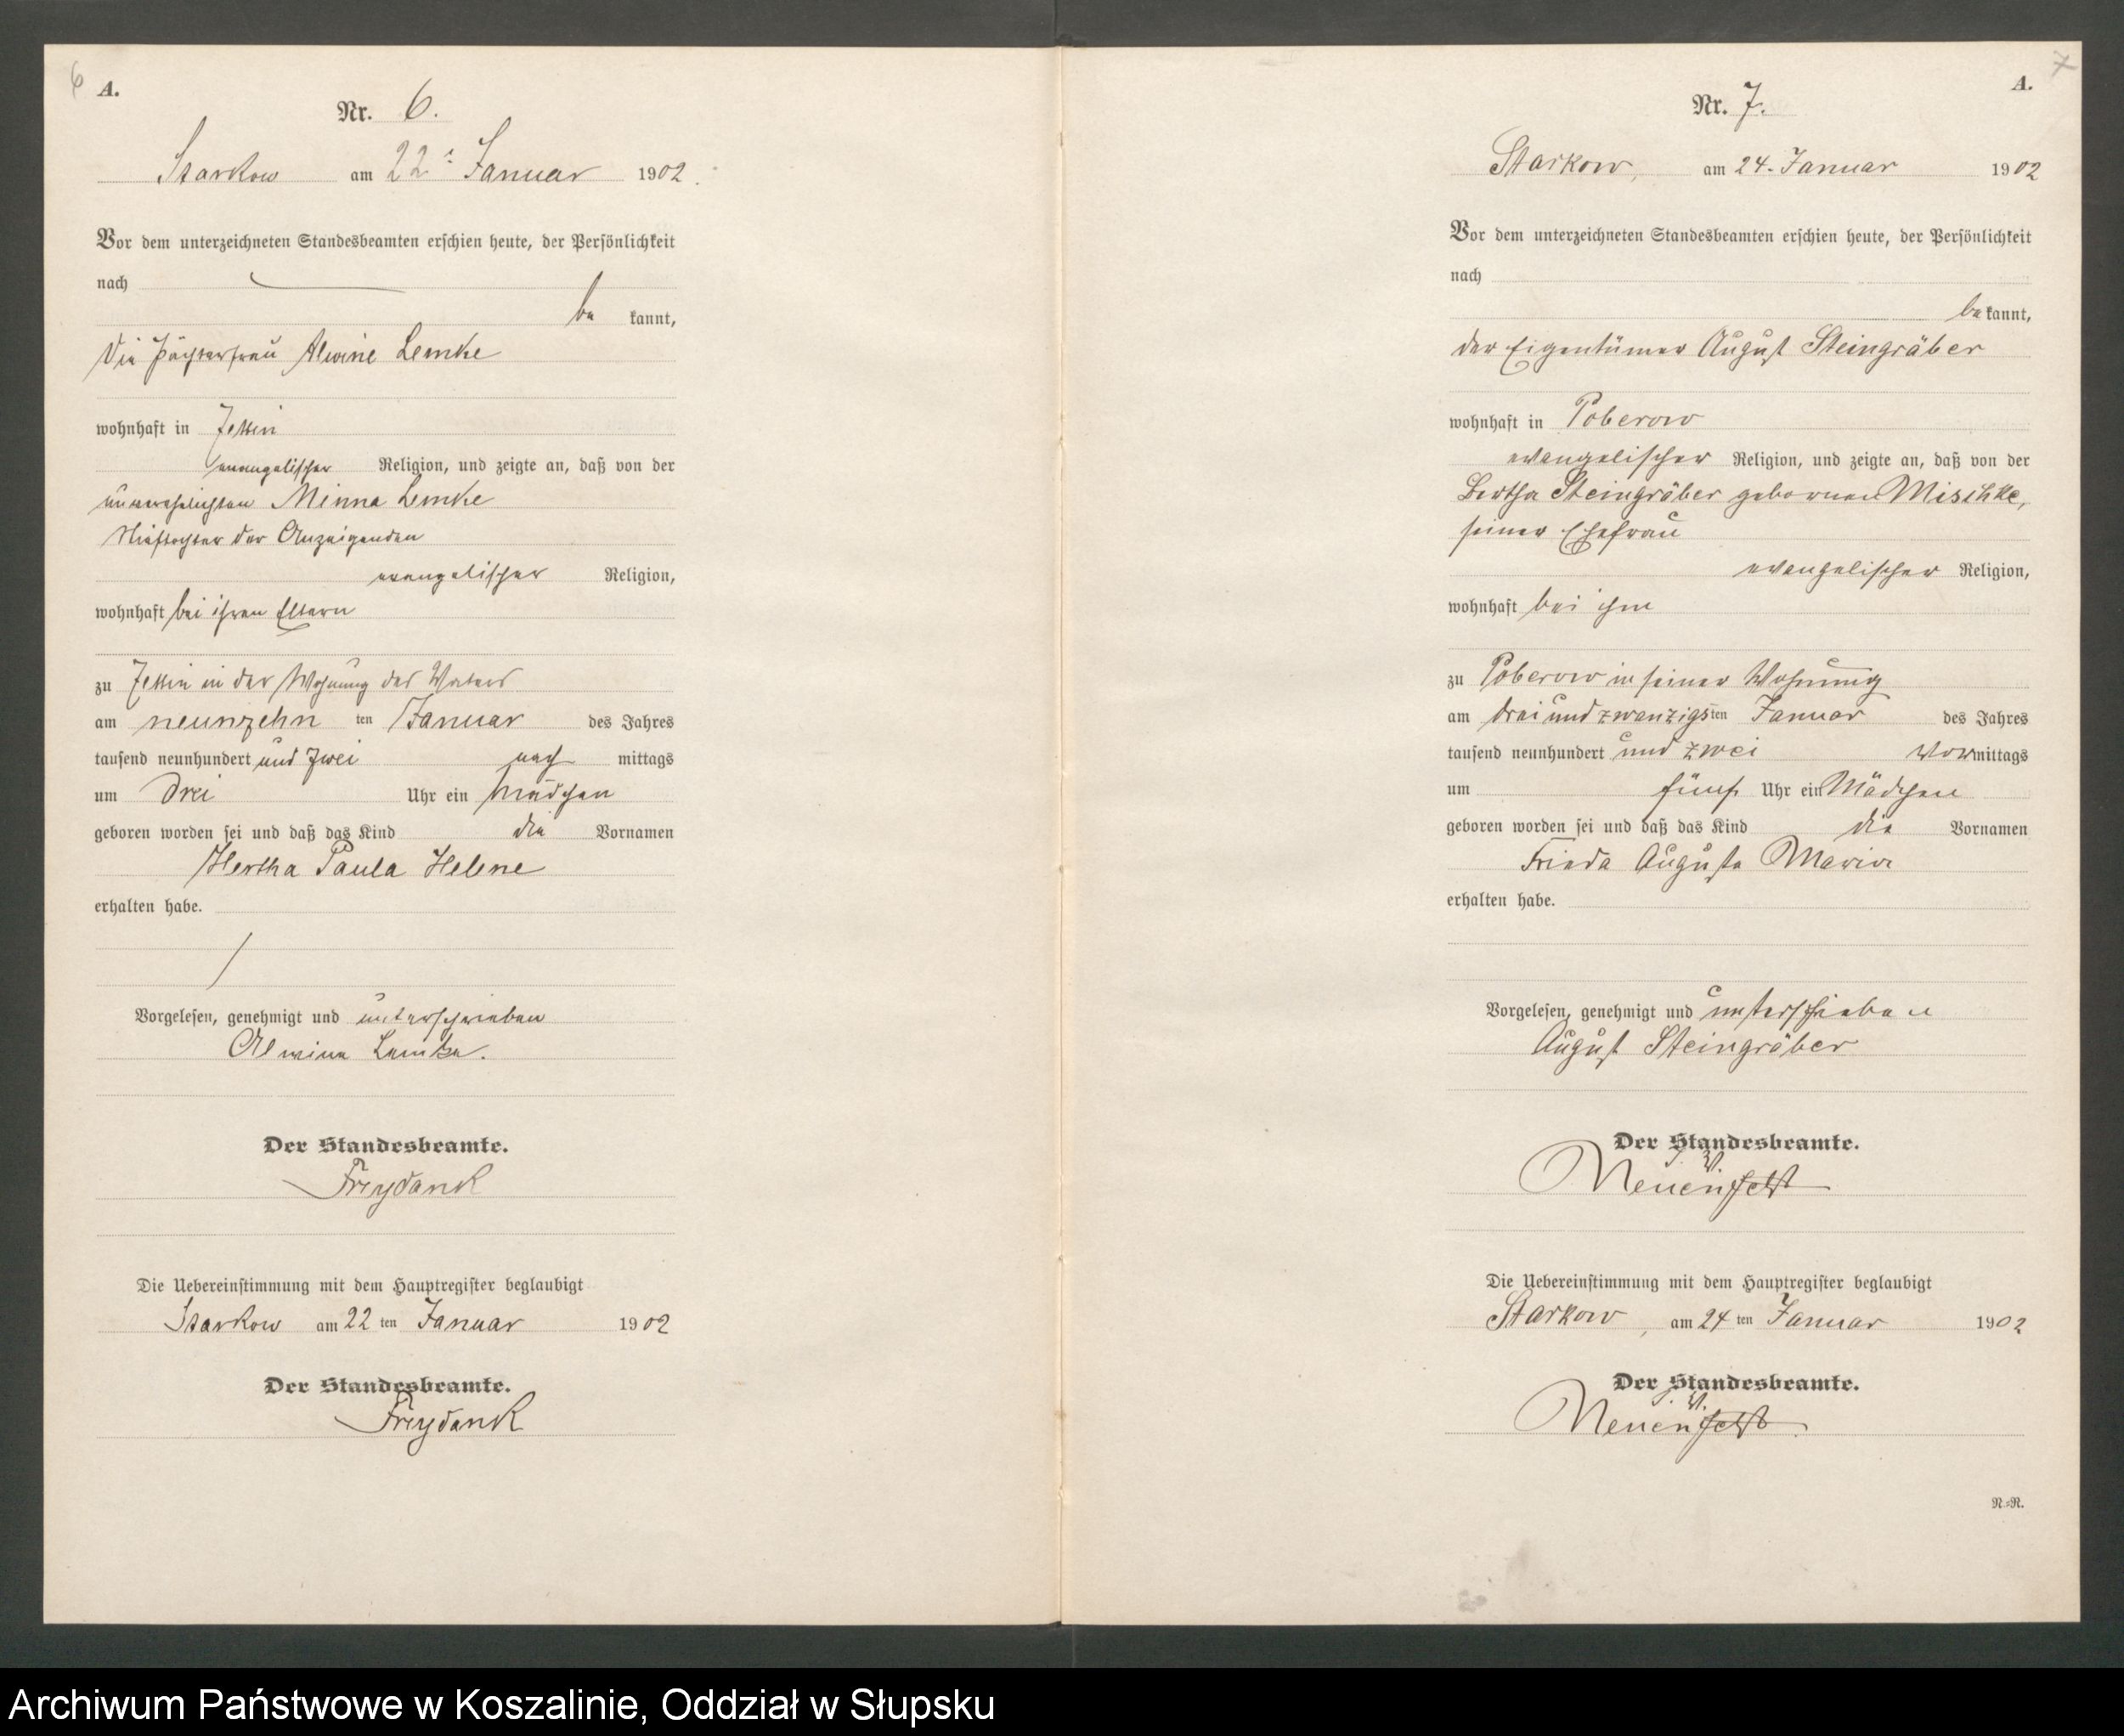 6
A.
Nr. 6.
Starkow am 22. Januar 1902.
Vor dem unterzeichneten Standesbeamten erschien heute, der Persönlichkeit
nach
be kannt,
die Pächterfrau Alwine Lemke
wohnhaft in
evangelischer Religion, und zeigte an, daß von der
unverehelichten Minna Lemke
Stieftochter der Anzeigenden
evangelischer Religion,
wohnhaft bei ihren Eltern
zu in der Wohnung des Vaters
am neunzehn ten Januar des Jahres
tausend neunhundert und zwei nach mittags
um drei Uhr ein Mädchen
geboren worden sei und daß das Kind die Vornamen
Hertha Paula Helene
erhalten habe.
Vorgelesen, genehmigt und unterschrieben
Alwine Lemke.
Der Standesbeamte.
Freydank
Die Uebereinstimmung mit dem Hauptregister beglaubigt
Starkow am 22 ten Januar 1902
Der Standesbeamte.
Freydank
7
A.
Nr. 7.
Starkow, am 24. Januar 1902
Vor dem unterzeichneten Standesbeamten erschien heute, der Persönlichkeit
nach
bekannt,
der Eigentümer August Steingräber
wohnhaft in Poberow
evangelischer Religion, und zeigte an, daß von der
Bertha Steingräber gebornen Mischke,
seiner Ehefrau
evangelischer Religion,
wohnhaft bei ihm
zu Poberow in seiner Wohnung
am drei und zwanzigsten Januar des Jahres
tausend neunhundert und zwei vormittags
um fünf Uhr ein Mädchen
geboren worden sei und daß das Kind die Vornamen
Frieda Auguste Marie
erhalten habe.
Vorgelesen, genehmigt und unterschrieben
August Steingräber
Der Standesbeamte.
J. V.
Neuenfeldt
Die Uebereinstimmung mit dem Hauptregister beglaubigt
Starkow, am 24 ten Januar 1902
Der Standesbeamte.
J. V.
Neuenfeldt
N-R.
Archiwum Państwowe w Koszalinie, Oddział w Słupsku